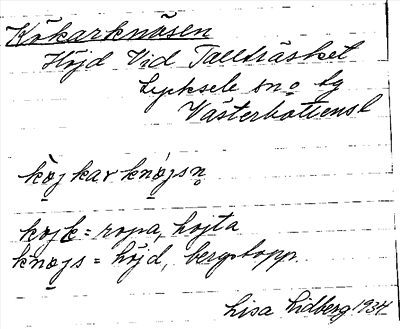 Kökarknösen
Höjd Vid Tallträsket
Lycksele sn o. tg
Västerbottens l
kö̱jkarknö̱jsn̥
köjk = ropa, hojta
knö̱js = höjd, bergstopp.
Lisa Lidberg 1934